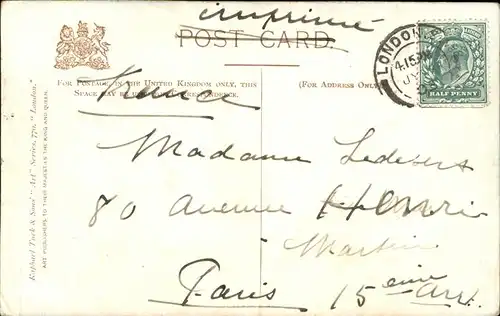 imprimé
POST CARD.
FOR POSTAGE IN THE UNITED KINGDOM ONLY, THIS
SPACE MAY BE USED FOR CORRESPONDENCE.
(FOR ADDRESS ONLY.)
LONDON
4.15 PM
HALF PENNY
France
Madame Lederers
80 Avenue Henri
Martin
Paris 15 eme arr.
Raphael Tuck & Sons' "Art" Series, 770, "London."
ART PUBLISHERS TO THEIR MAJESTIES THE KING AND QUEEN.